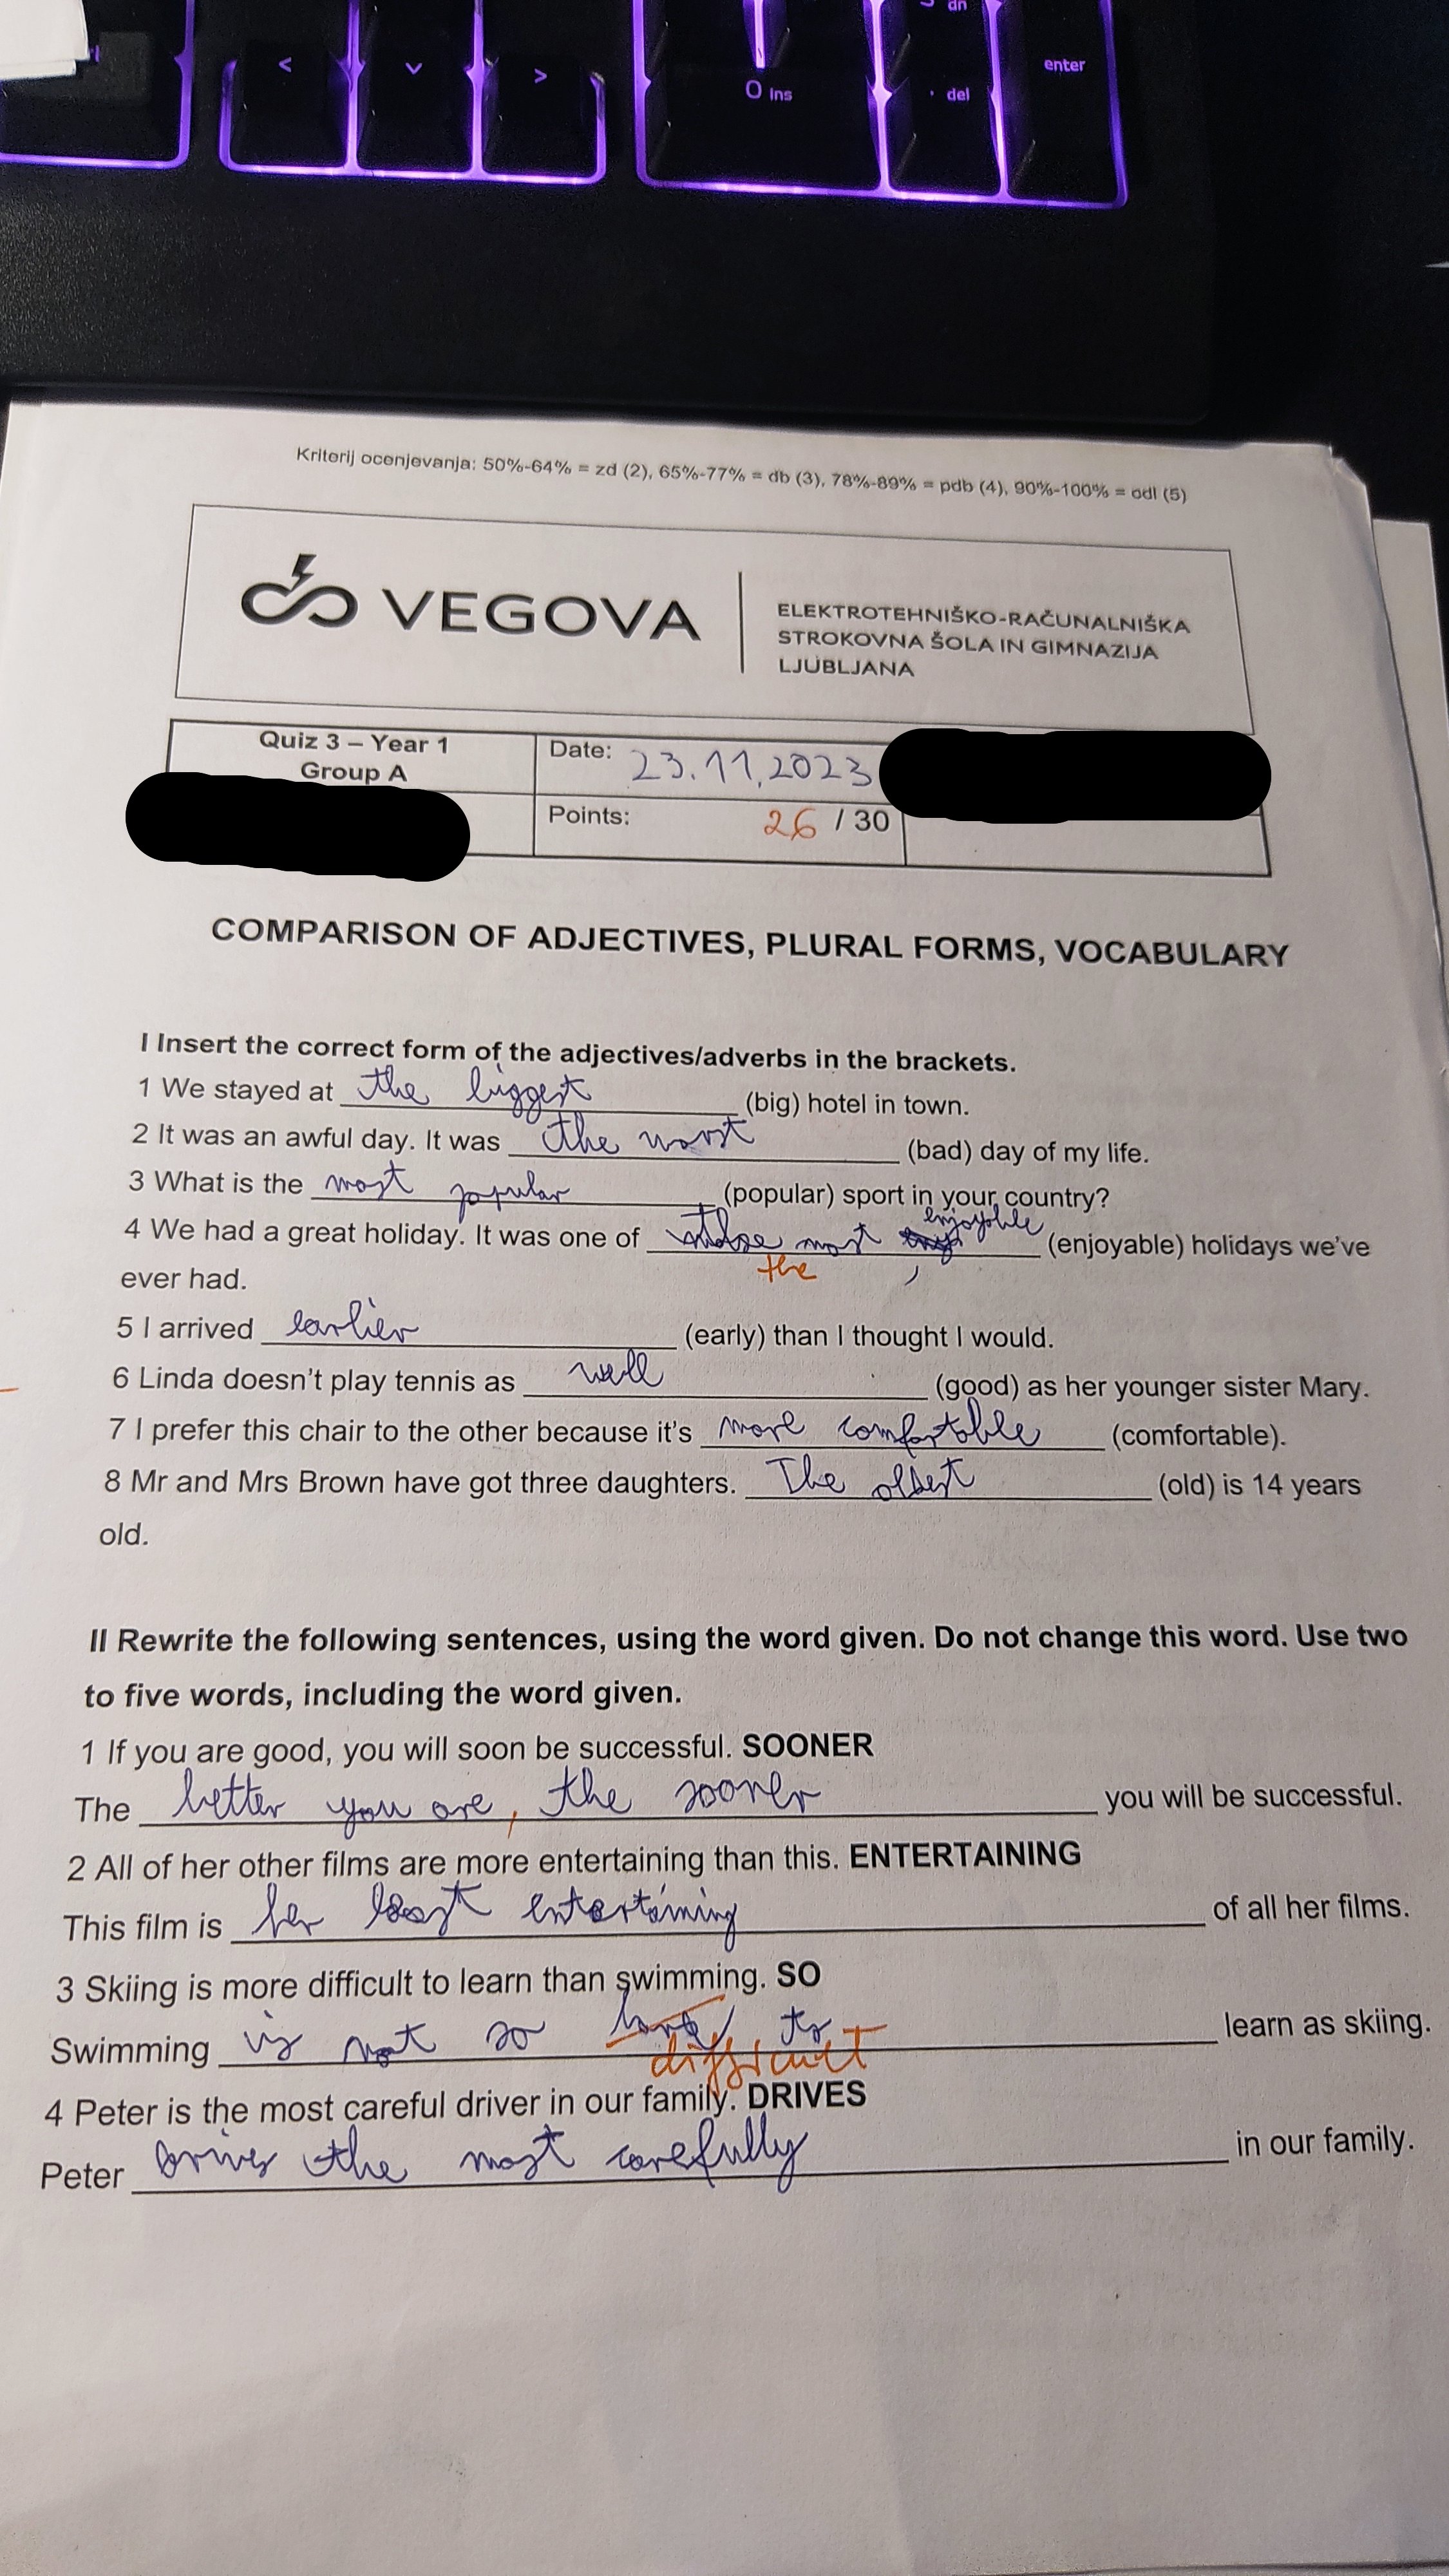 <
v
>
0 Ins
dn
. del
enter
Kriterij ocenjevanja: 50%-64% = zd (2), 65%-77% = db (3), 78%-89% = pdb (4), 90%-100% = odl (5)
VEGOVA
ELEKTROTEHNIŠKO-RAČUNALNIŠKA
STROKOVNA ŠOLA IN GIMNAZIJA
LJUBLJANA
Quiz 3 – Year 1
Group A
Date: 23.11.2023
Points: 26 / 30
COMPARISON OF ADJECTIVES, PLURAL FORMS, VOCABULARY
I Insert the correct form of the adjectives/adverbs in the brackets.
1 We stayed at the biggest (big) hotel in town.
2 It was an awful day. It was the worst (bad) day of my life.
3 What is the most popular (popular) sport in your country?
4 We had a great holiday. It was one of most enjoyable (enjoyable) holidays we've
the
ever had.
5 I arrived earlier (early) than I thought I would.
6 Linda doesn't play tennis as well (good) as her younger sister Mary.
7 I prefer this chair to the other because it's more comfortable (comfortable).
8 Mr and Mrs Brown have got three daughters. The oldest (old) is 14 years
old.
II Rewrite the following sentences, using the word given. Do not change this word. Use two
to five words, including the word given.
1 If you are good, you will soon be successful. SOONER
The better you are, the sooner you will be successful.
2 All of her other films are more entertaining than this. ENTERTAINING
This film is her least entertaining of all her films.
3 Skiing is more difficult to learn than swimming. SO
Swimming is not so hard to learn as skiing.
difficult
4 Peter is the most careful driver in our family. DRIVES
Peter drives the most carefully in our family.